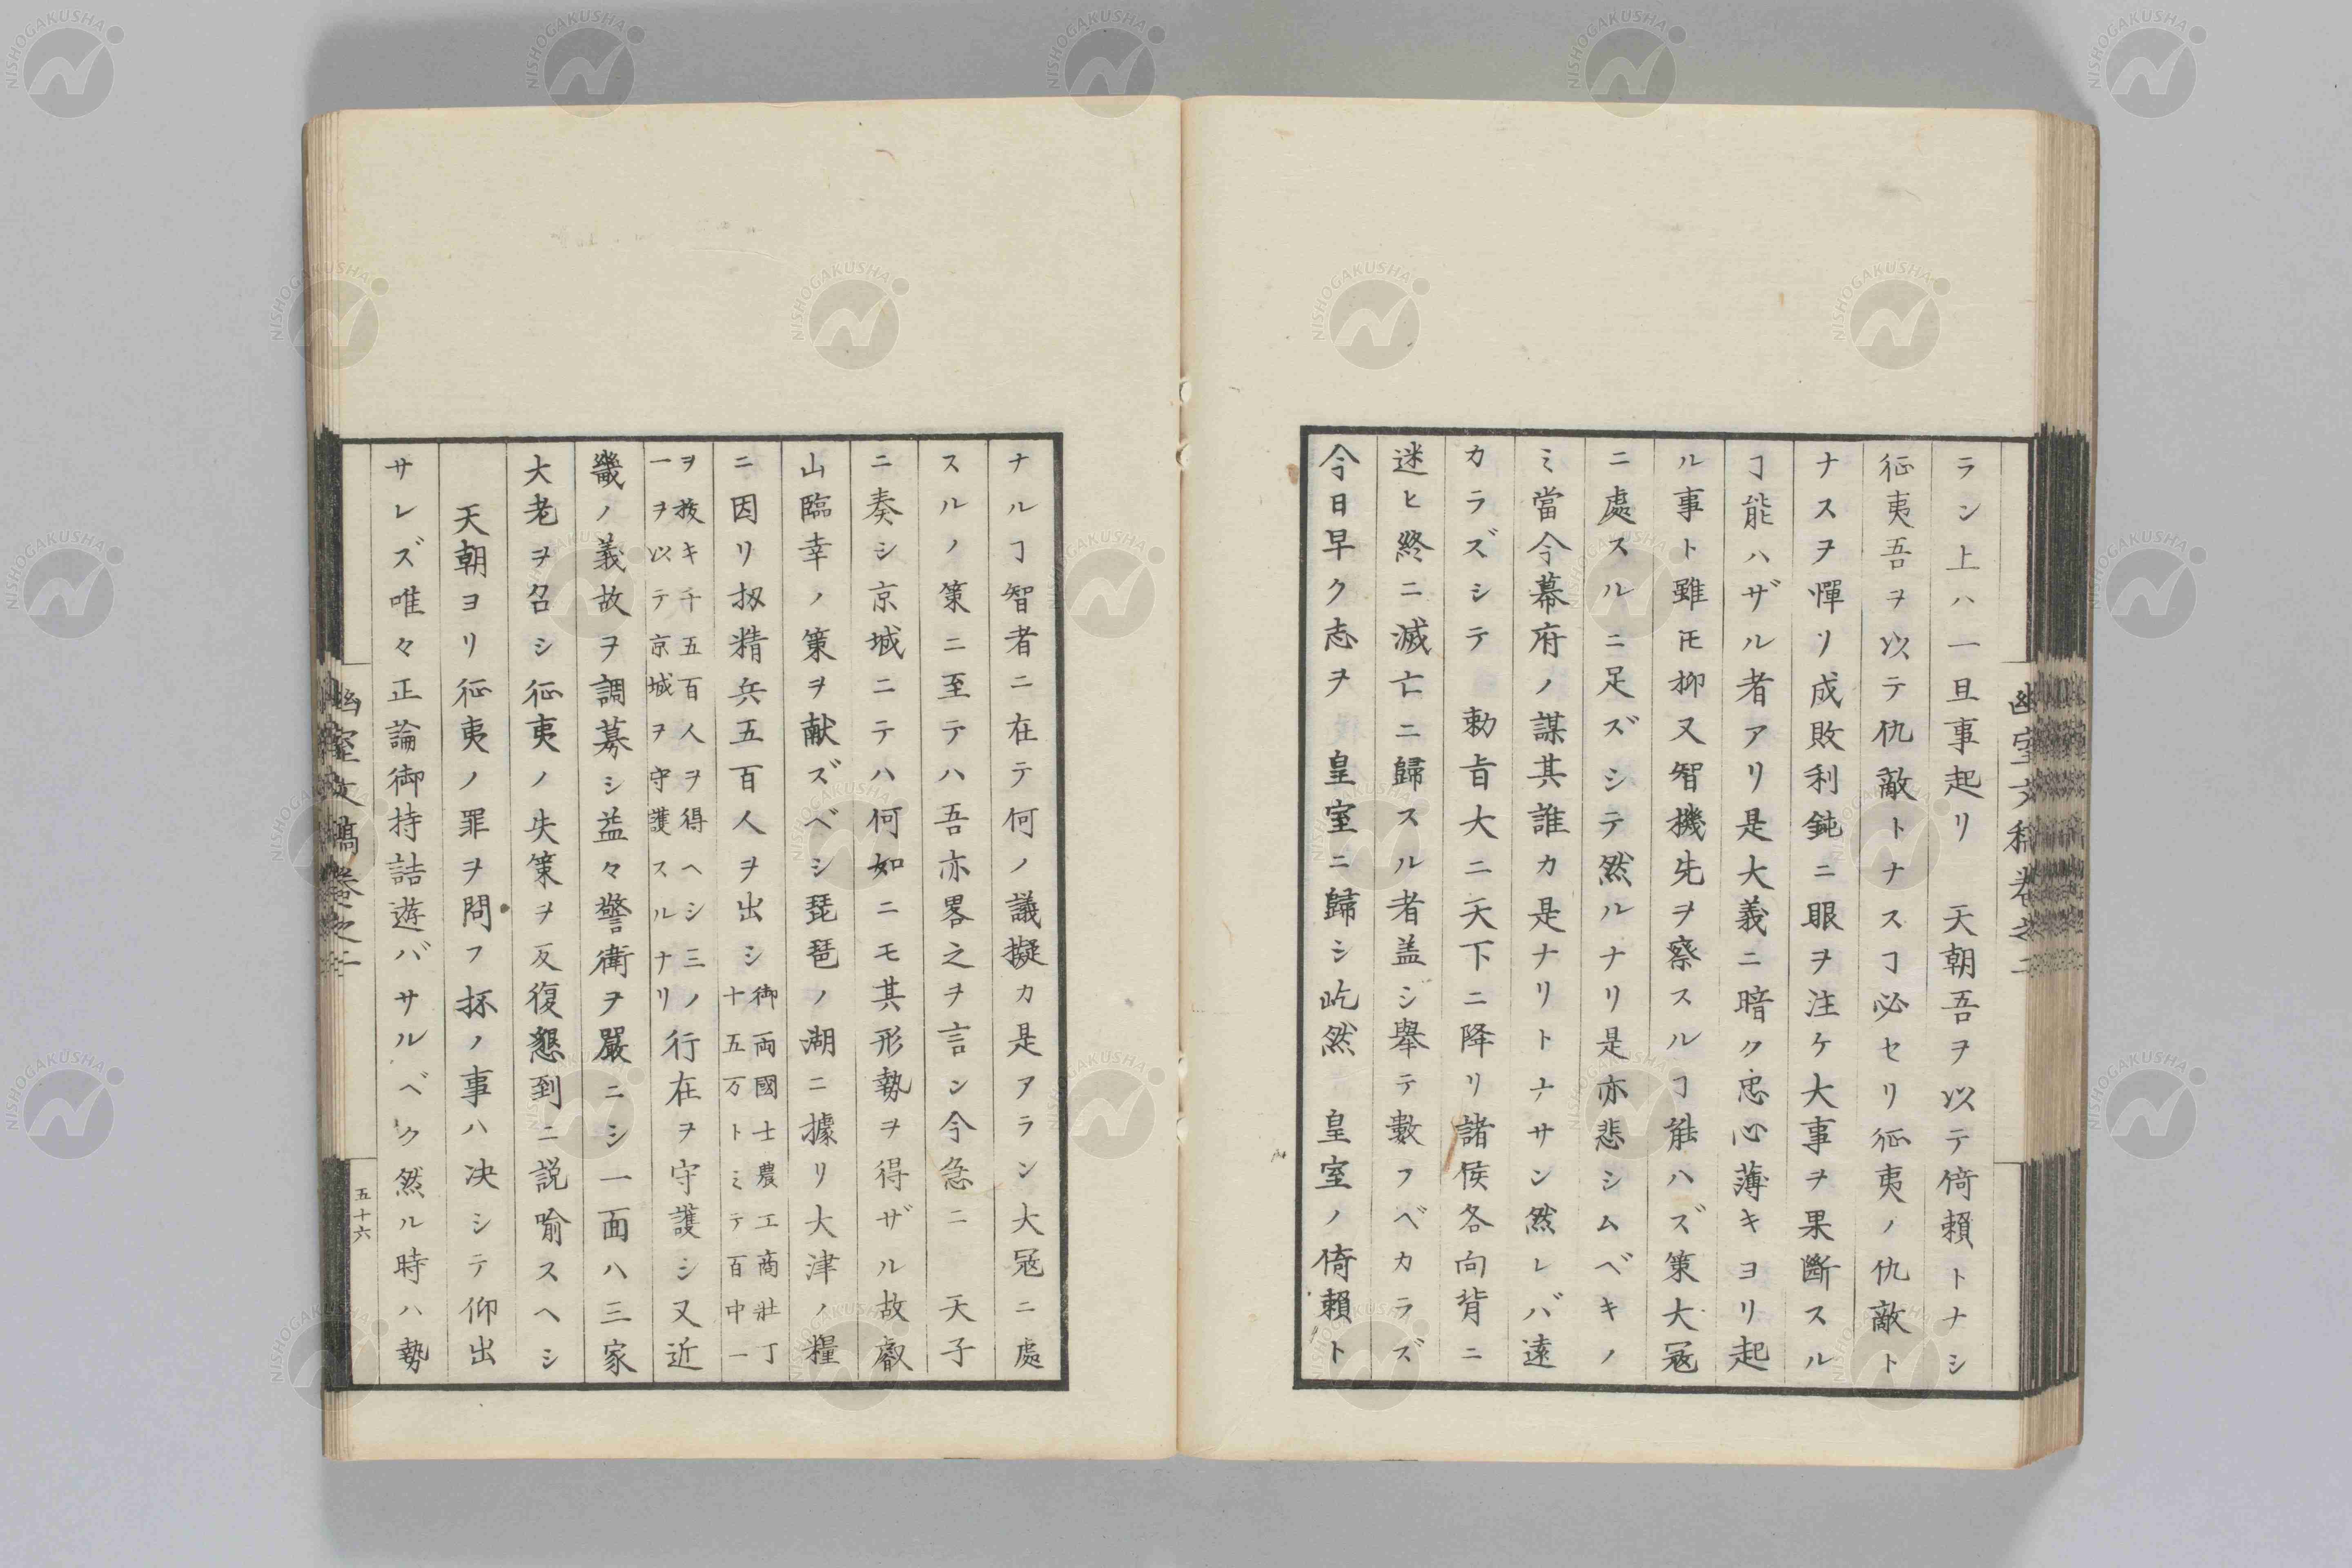 幽室文稿卷之二
ラン上ハ一旦事起リ　天朝吾ヲ以テ倚賴トナシ
征夷吾ヲ以テ仇敵トナスヿ必セリ征夷ノ仇敵ト
ナスヲ憚リ成敗利鈍ニ眼ヲ注ケ大事ヲ果斷スル
ヿ能ハザル者アリ是大義ニ暗ク忠心薄キヨリ起
ル事ト雖𪜈抑又智機先ヲ察スルヿ能ハズ策大冦
ニ處スルニ足ズシテ然ルナリ是亦悲シムベキノ
ミ當今幕府ノ謀其誰カ是ナリトナサン然レバ遠
カラズシテ　勅旨大ニ天下ニ降リ諸侯各向背ニ
迷ヒ終ニ滅亡ニ歸スル者盖シ舉テ數フベカラズ
今日早ク志ヲ　皇室ニ歸シ屹然　皇室ノ倚賴ト
ナルヿ智者ニ在テ何ノ議擬カ是アラン大冦ニ處
スルノ策ニ至テハ吾亦畧之ヲ言ン今急ニ　天子
ニ奏シ京城ニテハ何如ニモ其形勢ヲ得ザル故叡
山臨幸ノ策ヲ献ズベシ琵琶ノ湖ニ據リ大津ノ糧
ニ因リ扨精兵五百人ヲ出シ御両國士農工商壮丁
十五万トミテ百中一
ヲ拔キ千五百人ヲ得ヘシ三ノ
一ヲ以テ京城ヲ守護スルナリ行在ヲ守護シ又近
畿ノ義故ヲ調募シ益々警衛ヲ嚴ニシ一面ハ三家
大老ヲ召シ征夷ノ失策ヲ反復懇到ニ説喻スヘシ
天朝ヨリ征夷ノ罪ヲ問フ抔ノ事ハ决シテ仰出
サレズ唯々正論御持詰遊バサルベク然ル時ハ勢
幽室文稿卷之二
五十六
NISHOGAKUSHA